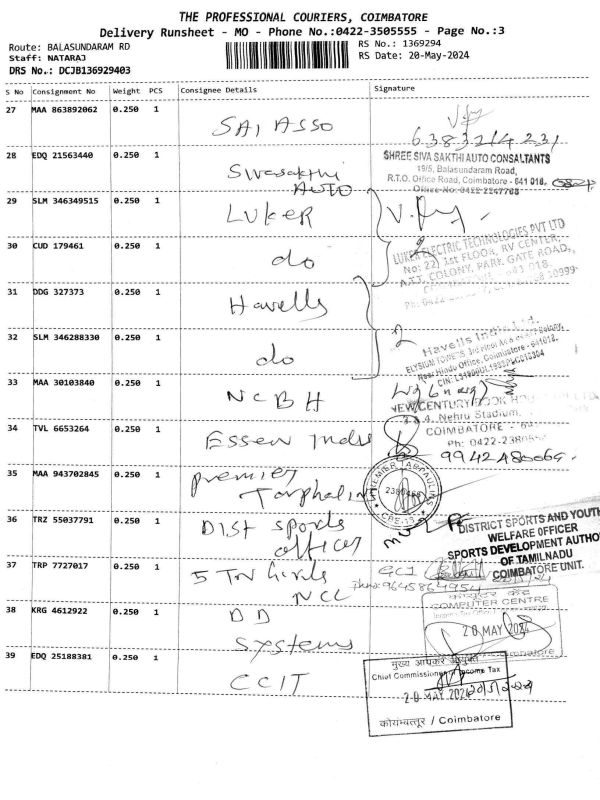 THE PROFESSIONAL COURIERS, COIMBATORE
Delivery Runsheet - MO - Phone No.:0422-3505555 - Page No.:3
Route: BALASUNDARAM RD
RS No.: 1369294
Staff: NATARAJ
RS Date: 20-May-2024
DRS No.: DCJB136929403
S No Consignment No Weight PCS Consignee Details Signature
27 MAA 863892062 0.250 1 SAI ASSO
6383214231
28 EDQ 21563440 0.250 1 Sivasakthi AUTO
SHREE SIVA SAKTHI AUTO CONSALTANTS
19/5, Balasundaram Road,
R.T.O. Office Road, Coimbatore - 641 018.
Office No:0422 2247768
29 SLM 346349515 0.250 1 LUKER
LUKER ELECTRIC TECHNOLOGIES PVT LTD
No: 22, 1st FLOOR, RV CENTER,
A.T.T. COLONY, PARK GATE ROAD,
30 CUD 179461 0.250 1 do
31 DDG 327373 0.250 1 Havells
2
Havells India Ltd.
32 SLM 346288330 0.250 1 do
33 MAA 30103840 0.250 1 NCBH
NEW CENTURY BOOK HOUSE
Nehru Stadium,
COIMBATORE -
34 TVL 6653264 0.250 1 Essen Indu
35 MAA 943702845 0.250 1 premier Tarphalin
PREMIER TARPAULINS
CBE-18
36 TRZ 55037791 0.250 1 Dist sports officer
DISTRICT SPORTS AND YOUTH
WELFARE OFFICER
SPORTS DEVELOPMENT AUTHO
OF TAMILNADU
COIMBATORE UNIT.
37 TRP 7727017 0.250 1 5 TN Girls NCC
9645864954
38 KRG 4612922 0.250 1 DD systems
COMPUTER CENTRE
20 MAY 2024
39 EDQ 25188381 0.250 1 CCIT
मुख्य आयकर आयुक्त
Chief Commissioner of Income Tax
20 MAY 2024
कोयम्बत्तूर / Coimbatore